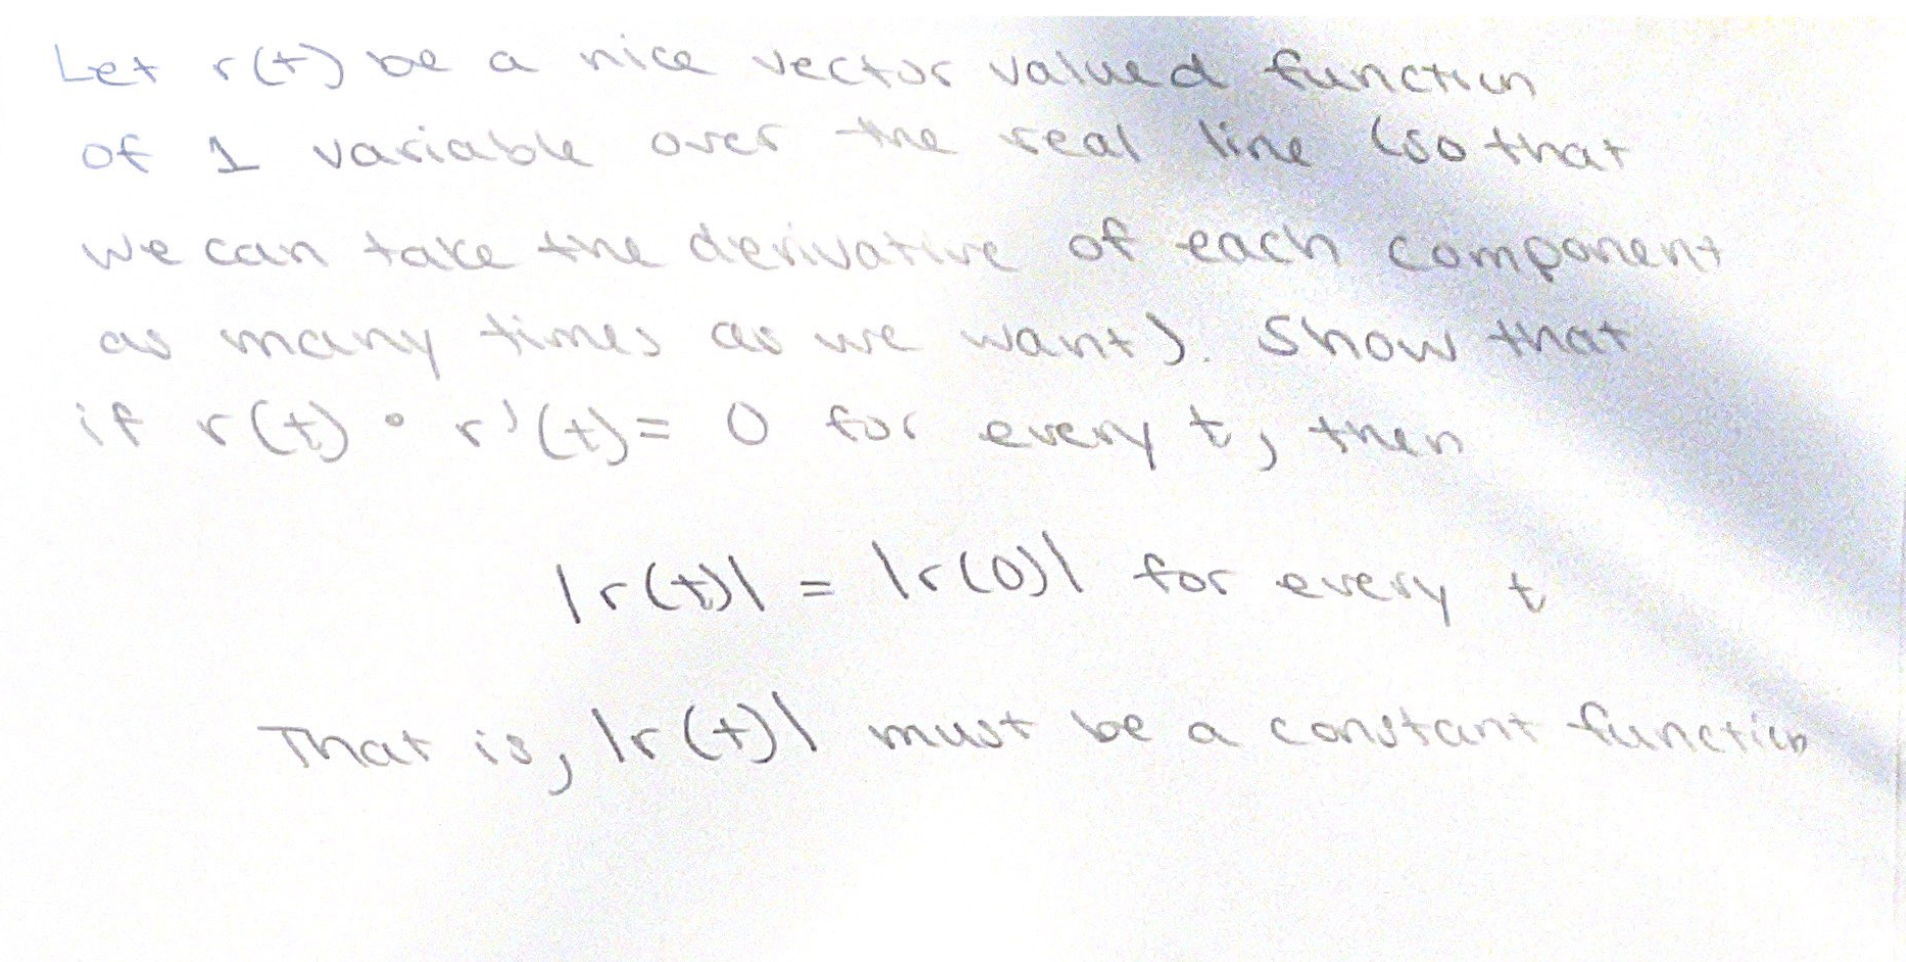 Let r(t) be a nice vector valued function
of 1 variable over the real line (so that
we can take the derivative of each component
as many times as we want). Show that
if r(t) • r'(t) = 0 for every t, then
|r(t)| = |r(0)| for every t
That is, |r(t)| must be a constant function